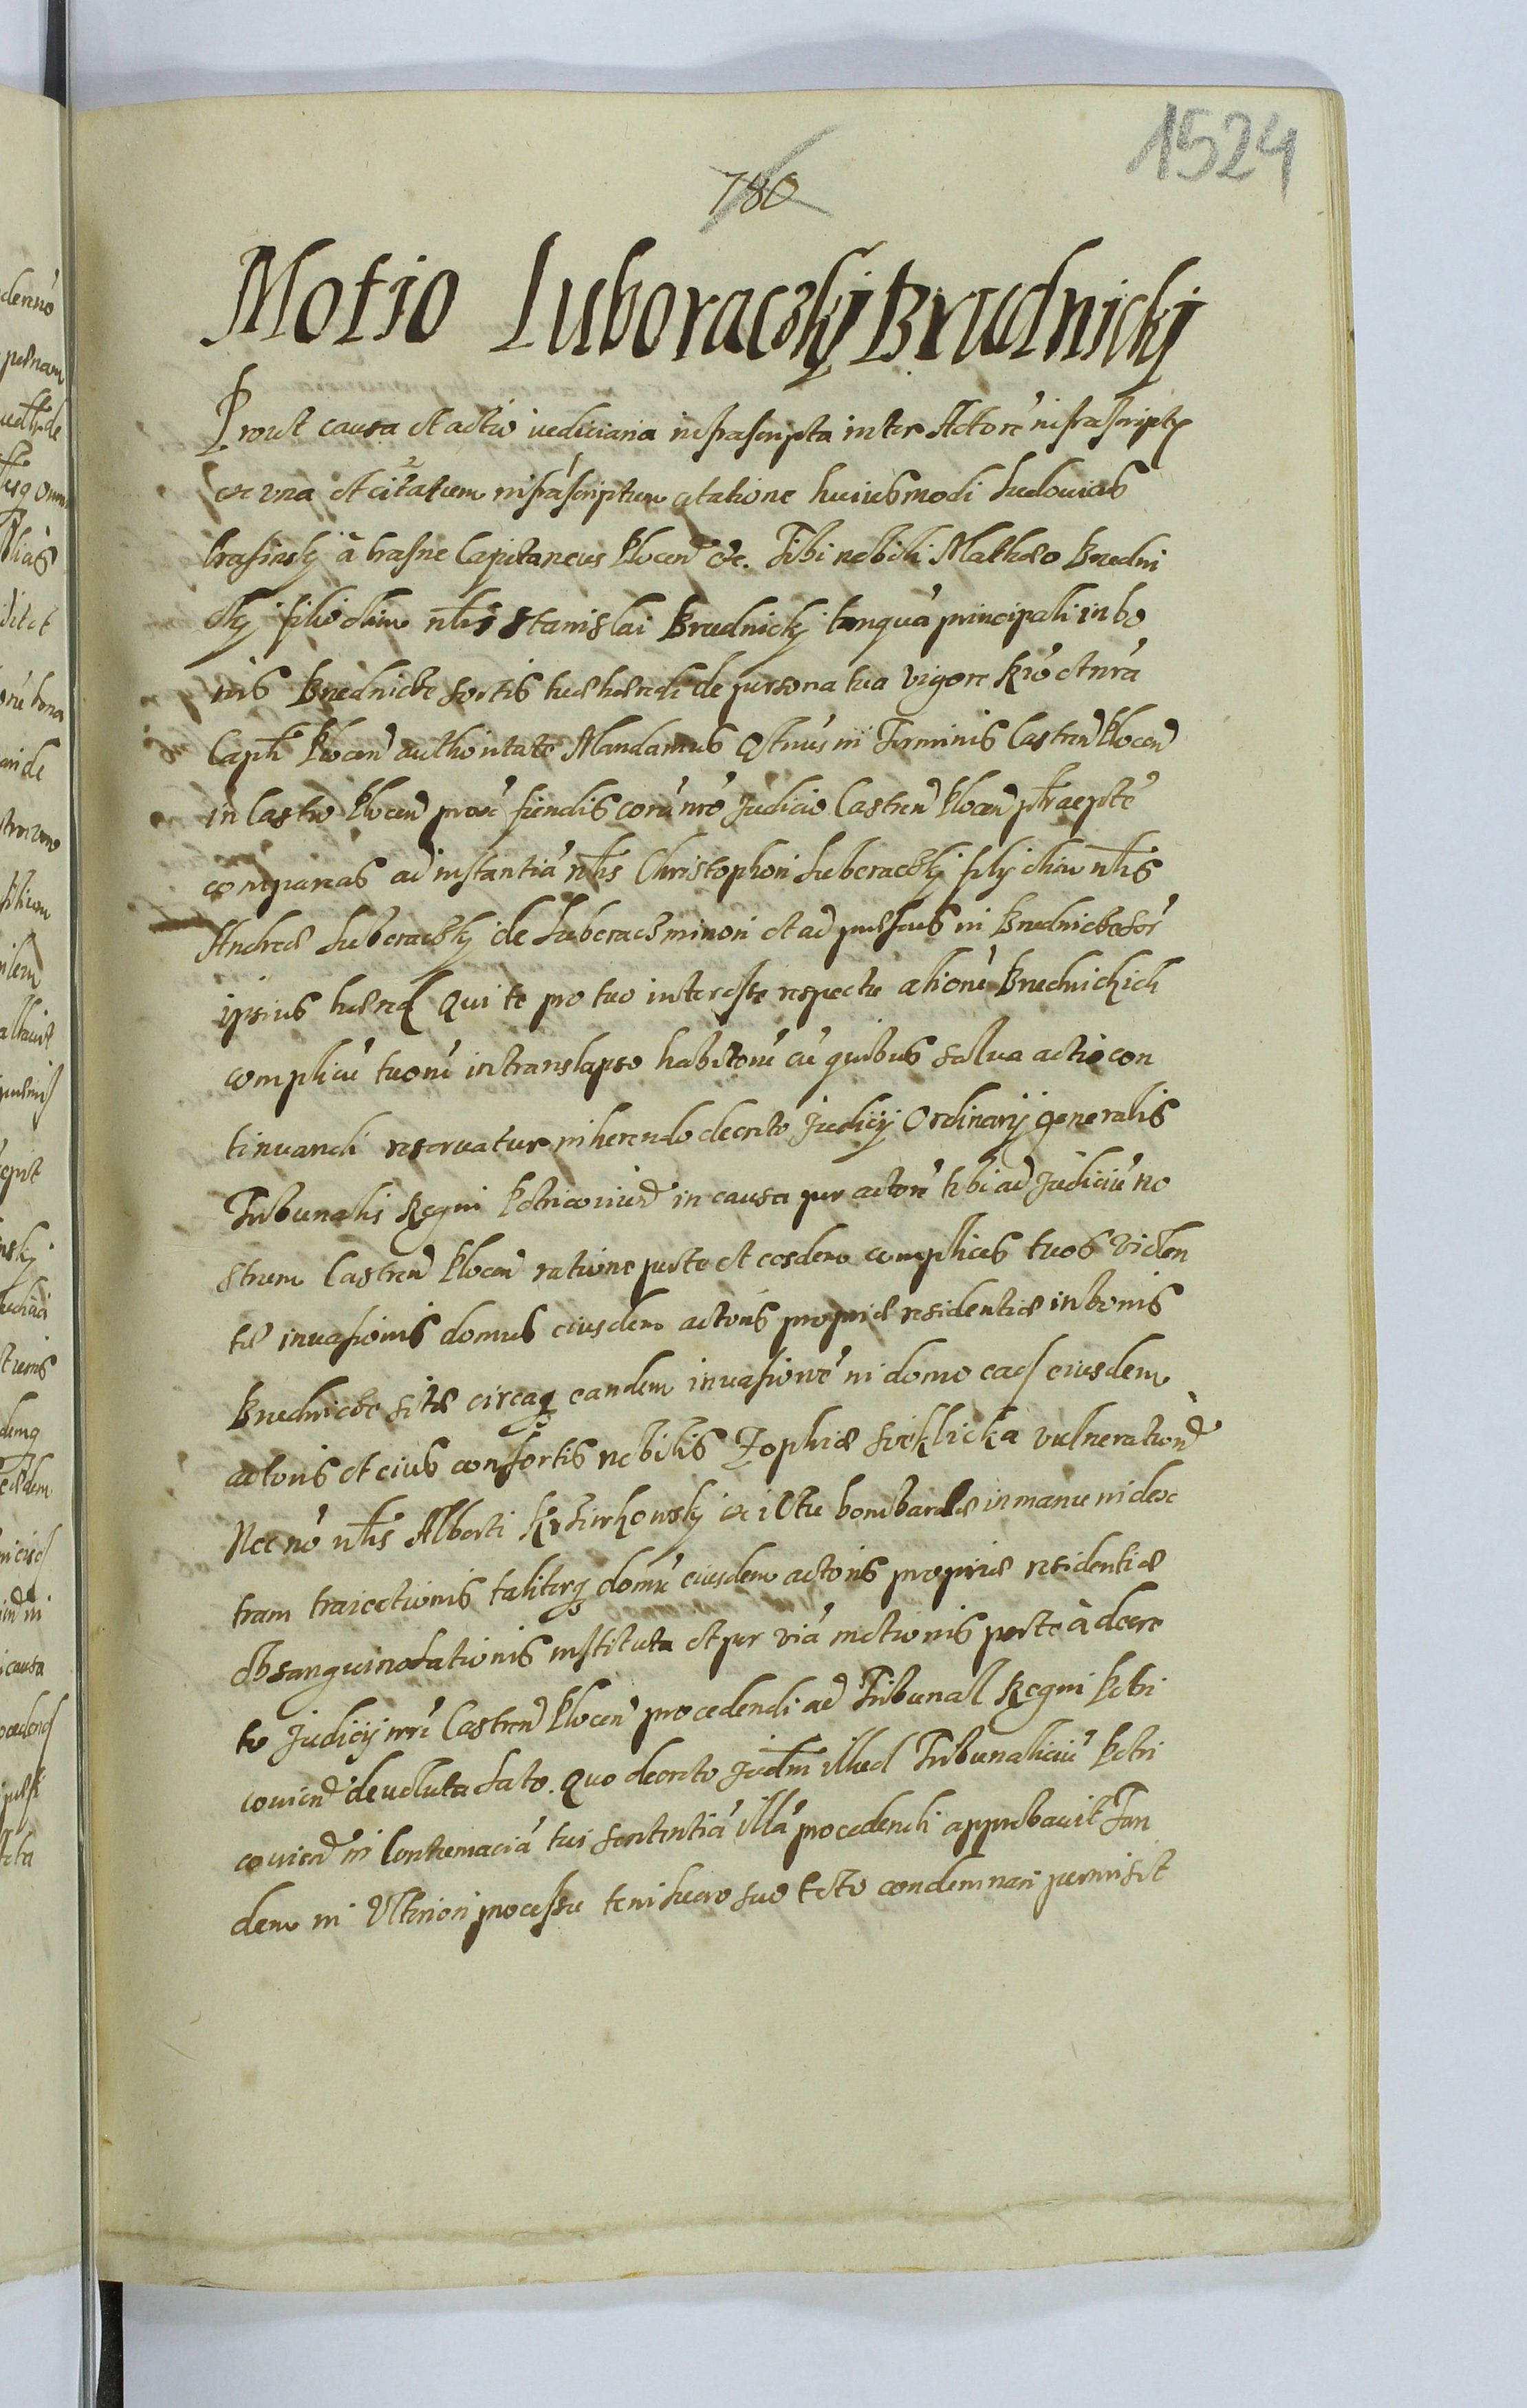 1524
780
Motio Luboraczkj Brudnickj
Prout causa et actio iudiciaria infrascripta inter Actorē infrascriptū
ex una et citatum infrascriptum citatione huiusmodi Ludovicus
Krasinskj à Krasne Capitaneus Plocen̄ &c. Tibi nobili Mathæo Brudni
ckj filio olim nblis Stanislai Brudnickj tanquā principali in bo
nis Brudnicze sortis tuæ hæredi de persona tua vigore
Capli Plocen̄ authoritate Mandamus qtnus in Terminis Castren̄ Plocen̄
in Castro Plocen̄ fiendis corā nro Judicio Castren̄ Plocen̄ ptraepte
compareas ad instantiā nblis Christophori Luboraczkj filij olim nblis
Andreæ Luboraczkj de Luboracz minori et ad præsens in Brudnicze sor
ipsius hæred Qui te pro tuo interesse respectu aliorū Brudnickich
complicū tuorū in translapso habitorū cū quibus salua actio con
tinuandi reseruatur inherendo decreto Judicij Ordinarij generalis
Tribunalis Regni Petricouien̄ in causa per actorē tibi ad Judiciū no
strum Castren̄ Plocen̄ ratione per te et eosdem complices tuos violen
tæ inuasionis domus eiusdem actoris propriæ residentiæ in bonis
Brudnicze sitæ circaq eandem inuasionē in domo ead eiusdem
actoris et eius consortis nobilis Zophiæ vulneration̄
Nec nō nblis Alberti ex ictu bombardæ in manu in dex
tram traiectionis taliterq domū eiusdem actoris propriæ residentiæ
obsanguinolationis instituta et per viā motionis per te à decre
to Judicij nri Castren̄ Plocen̄ procedendi ad Tribunal Regni Petri
couien̄ deuoluta lato. Quo decreto Judm illud Tribunaliciū Petri
couien̄ in Contumaciā tui sententiā illā procedendi approbauit Tan
dem in Vlteriori processu te in lucro suo tecto condemnari permisit